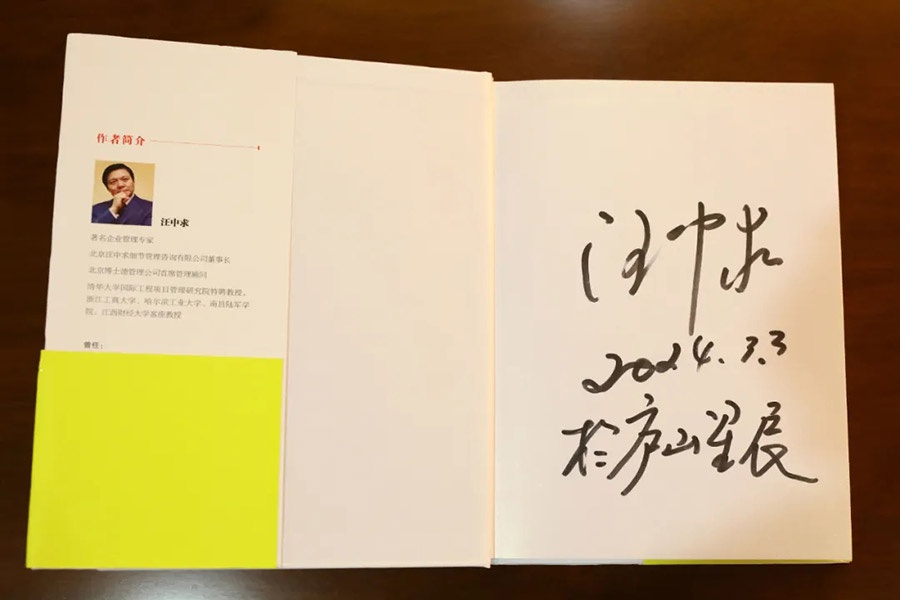 作者简介
汪中求
著名企业管理专家
北京汪中求细节管理咨询有限公司董事长
北京博士德管理公司首席管理顾问
清华大学国际工程项目管理研究院特聘教授、
浙江工商大学、哈尔滨工业大学、南昌陆军学
院、江西财经大学客座教授
曾任：
汪中求
2024.3.3
于庐山星辰